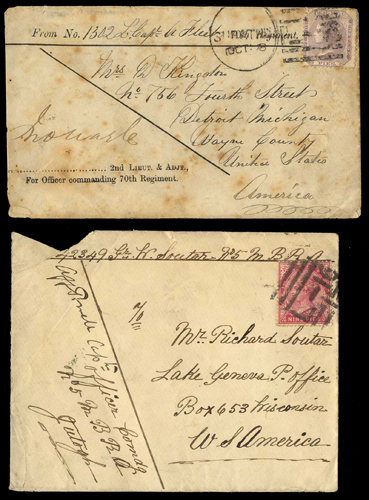 From No. 1302 L. Capt. A Regiment.
Mrs D Kingston
No 756 Fourth Street
Detroit Michigan
Wayne County
United States
America
2nd Lieut. & Adjt.,
For Officer commanding 70th Regiment.
43349 Gr W. Soutar No 5 M B R A
%
Mr Richard Soutar
Lake Geneva P. office
Box 653 Wisconsin
U S America
Capt officer Comdg
No 5 M B R A